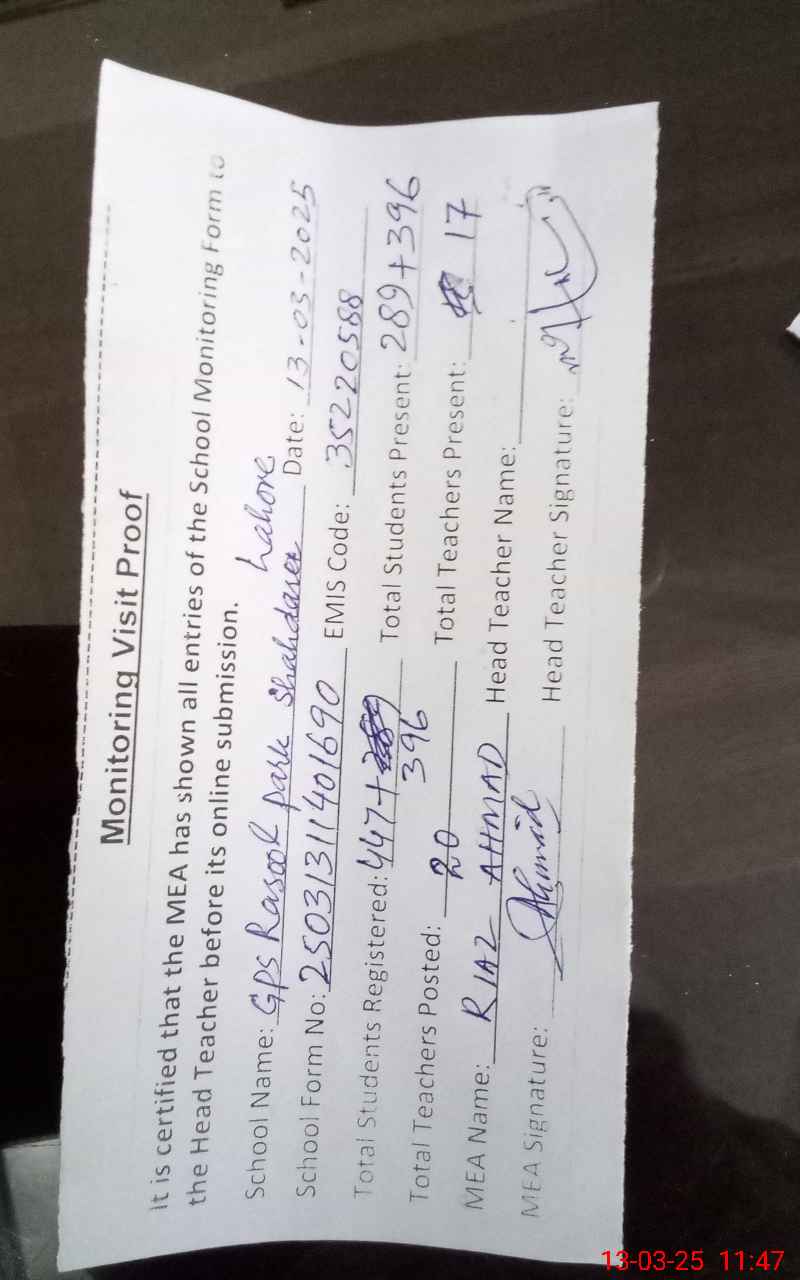 Monitoring Visit Proof
It is certified that the MEA has shown all entries of the School Monitoring Form to
the Head Teacher before its online submission.
School Name: GPS Rasool park Shahdara Lahore Date: 13-03-2025
School Form No: 2503131140 1690 EMIS Code: 35220588
Total Students Registered: 447+396 Total Students Present: 289+396
Total Teachers Posted: 20 Total Teachers Present: 17
MEA Name: RIAZ AHMAD Head Teacher Name:
MEA Signature: Ahmad Head Teacher Signature:
13-03-25 11:47